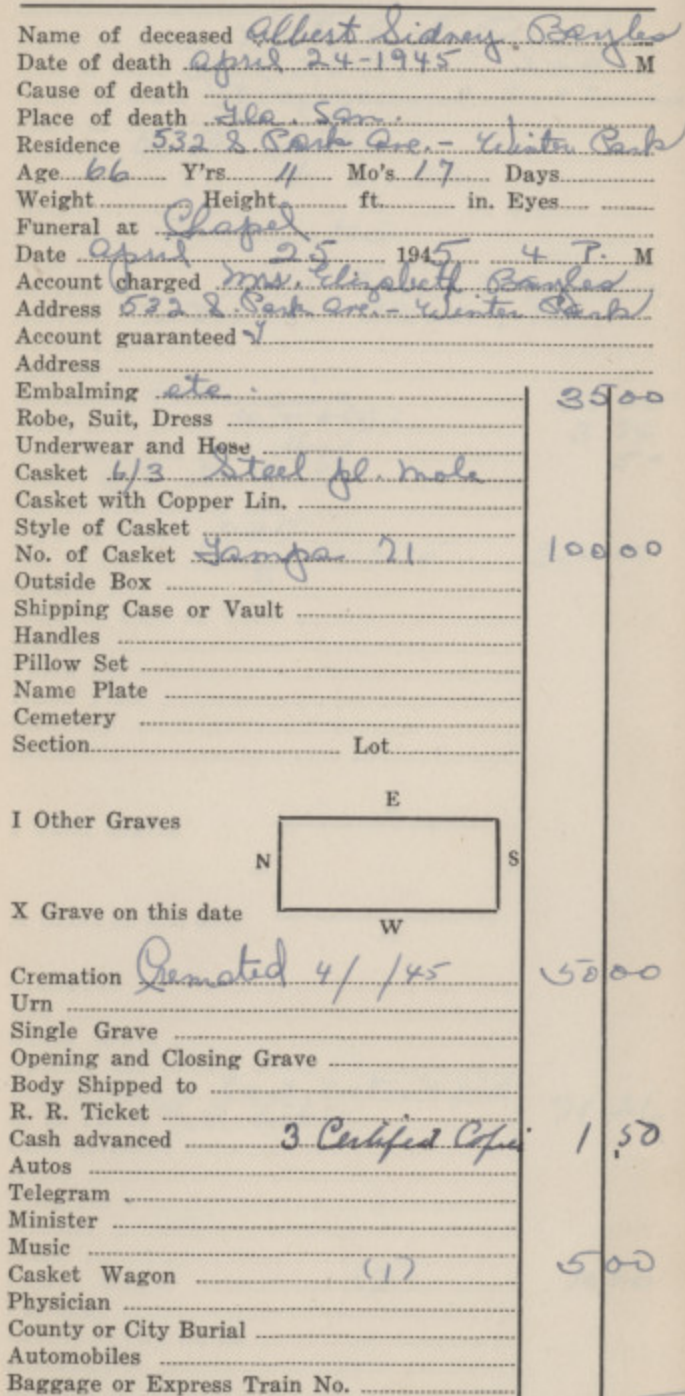 Name of deceased Albert Sidney Bayles
Date of death April 24-1945 M
Cause of death
Place of death Fla. San.
Residence 532 S. Park Ave. - Winter Park
Age 66 Y'rs 11 Mo's 17 Days
Weight Height ft. in. Eyes
Funeral at Chapel
Date April 25 1945 4 P. M
Account charged Mrs. Elizabeth Bayles
Address 532 S. Park Ave. - Winter Park
Account guaranteed
Address
Embalming etc. 35 00
Robe, Suit, Dress
Underwear and Hose
Casket 6/3 Steel pl. mole
Casket with Copper Lin.
Style of Casket
No. of Casket Tampa 21 100 00
Outside Box
Shipping Case or Vault
Handles
Pillow Set
Name Plate
Cemetery
Section Lot
E
I Other Graves
N S
X Grave on this date
W
Cremation Cremated 4/ /45 50 00
Urn
Single Grave
Opening and Closing Grave
Body Shipped to
R. R. Ticket
Cash advanced 3 Certified Copies 1.50
Autos
Telegram
Minister
Music
Casket Wagon (1) 5 00
Physician
County or City Burial
Automobiles
Baggage or Express Train No.